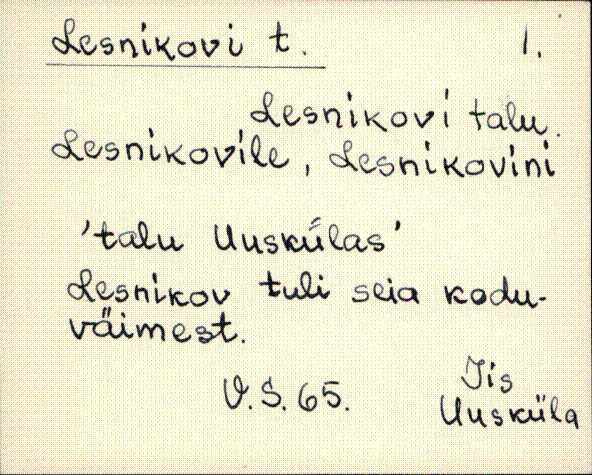 Lesnikovi t. 1.
Lesnikovi talu.
Lesnikovile, Lesnikovini
'talu Uuskülas'
Lesnikov tuli seia kodu-
väimest.
V.S. 65. Jis
Uusküla